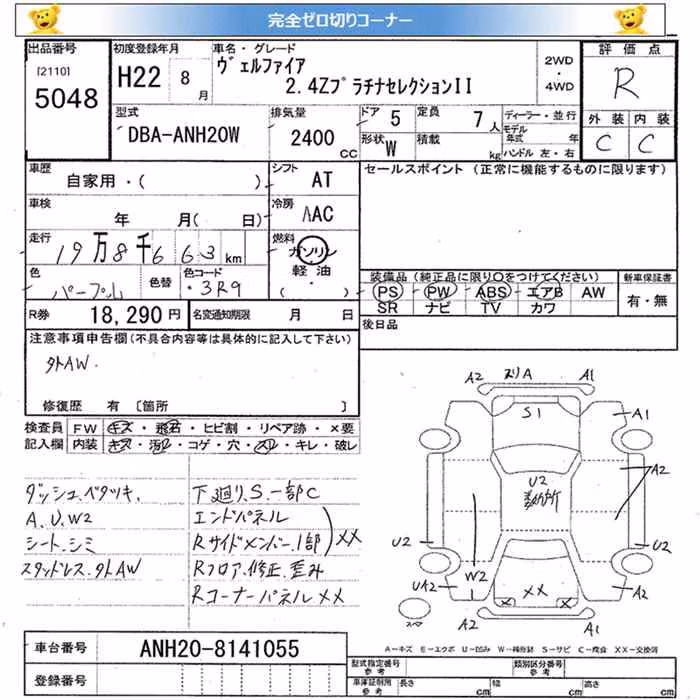 完全ゼロ切りコーナー
出品番号
[2110]
5048
初度登録年月
H22 8 月
車名・グレード
ヴェルファイア
2.4ZプラチナセレクションII
2WD
・
4WD
評価点
R
外装 内装
C C
型式
DBA-ANH20W
排気量
2400 CC
ドア 5
形状 W
定員 7 人
積載 kg
ディーラー・並行
モデル年式 年
ハンドル 左・右
車歴
自家用・( )
シフト AT
セールスポイント (正常に機能するものに限ります)
車検
年 月( 日)
冷房 AAC
走行
19万8千663 km
燃料
ガソリン
軽油
( )
色
パープル
色替
色コード
・3R9
装備品 (純正品に限り○をつけてください)
PS PW ABS エアB AW
SR ナビ TV カワ
新車保証書
有・無
R券 18,290 円
名変通知期限 月 日
後日品
注意事項申告欄 (不具合内容等は具体的に記入して下さい)
外AW.
修復歴 有 [箇所 ]
検査員記入欄
FW キズ・飛石・ヒビ割・リペア跡・×要
内装 キズ・汚レ・コゲ・穴・スレ・キレ・破レ
ダッシュベタツキ.
A.U.W2
シート.シミ
スタッドレス.外AW
下廻り.S.一部C
エンドパネル
Rサイドメンバー.1部
XX
Rフロア.修正.歪み
Rコーナーパネル XX
A2 A A1
S1
A1
U2
A2
U2 U2
W2
UA2
XX
A2
A2 A2
A-キズ E-エクボ U-凹み W-補修跡 S-サビ C-腐食 XX-交換済
車台番号 ANH20-8141055
登録番号
型式指定番号
参考
類別区分番号
参考
車庫証明用
参考
長さ cm 幅 cm 高さ cm